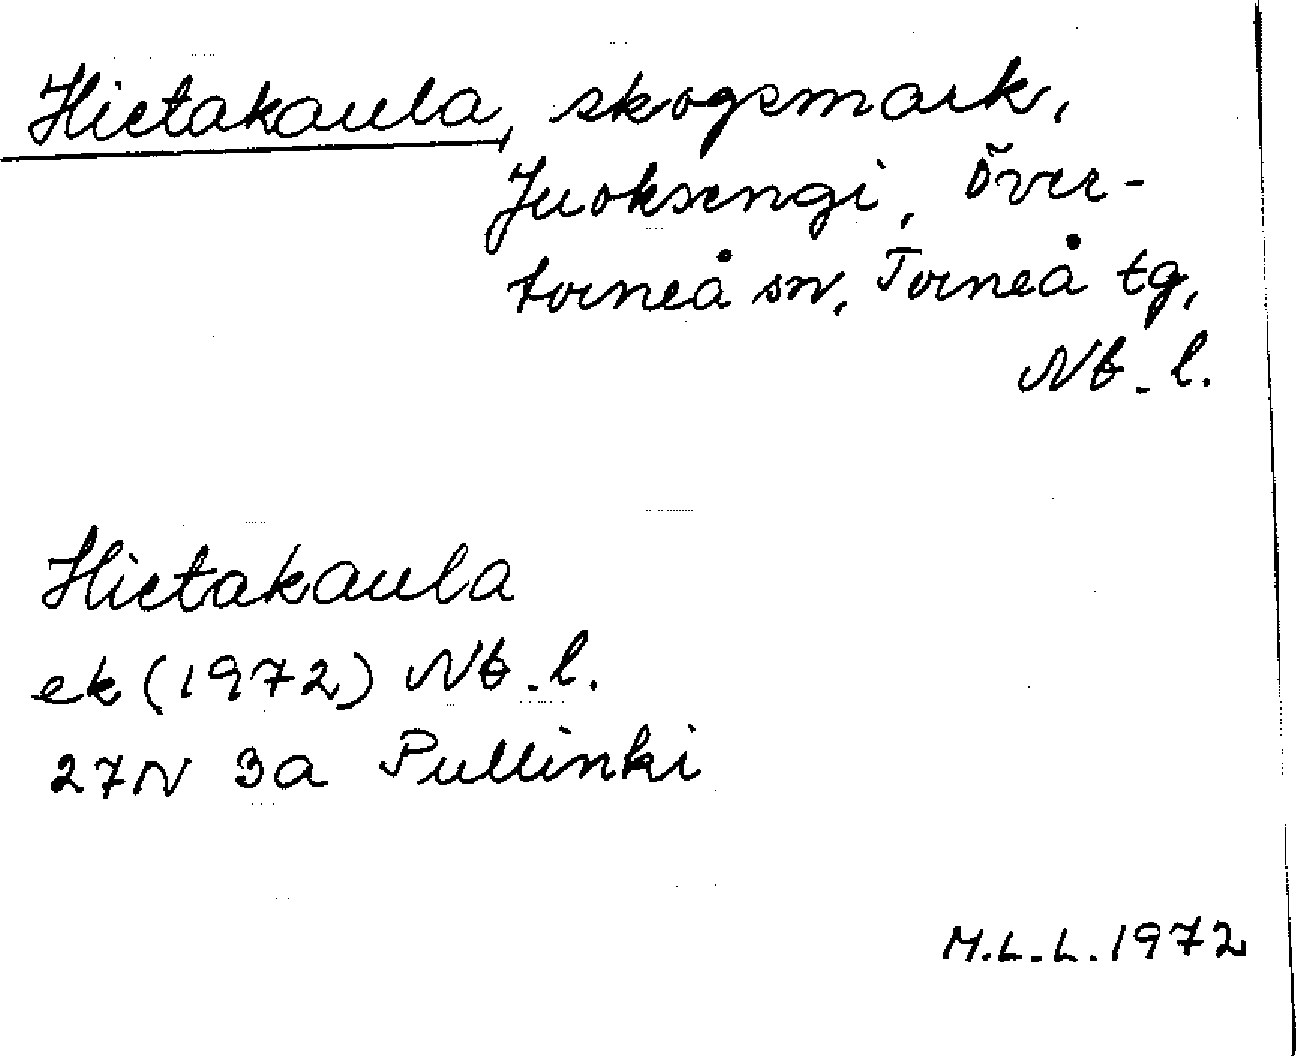 Hietakaula, skogsmark,
Juoksengi, Över-
torneå sn, Torneå tg,
Nb. l.
Hietakaula
ek (1972) Nb. l.
27N 3a Pullinki
M.L.L. 1972